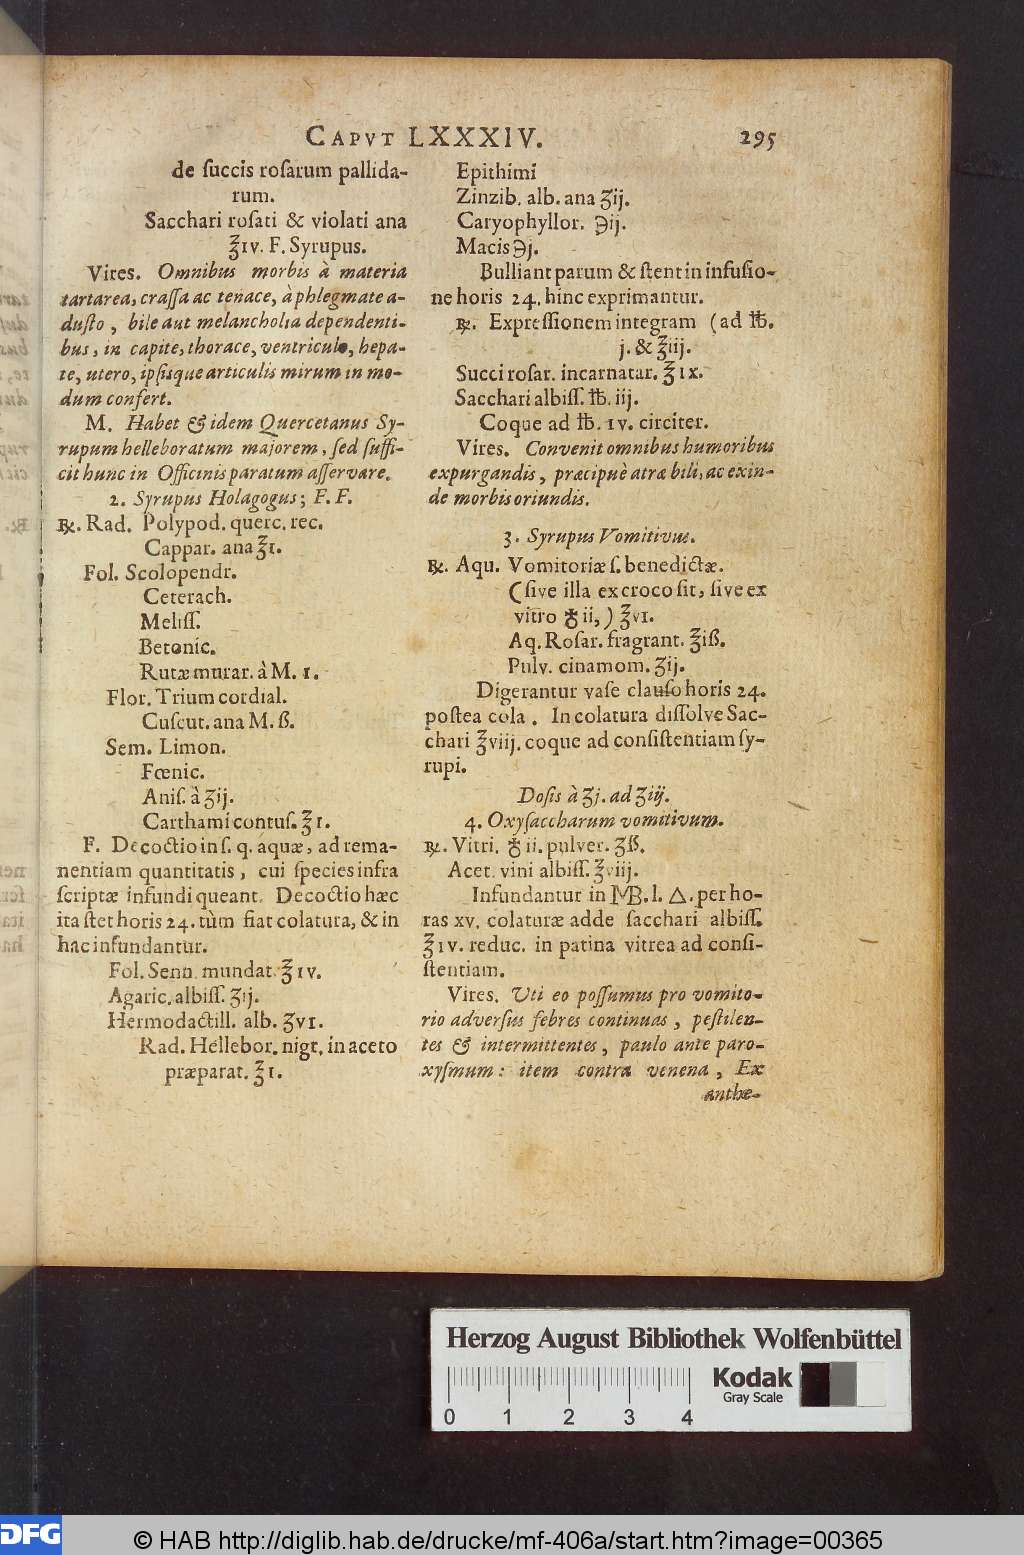 CAPVT LXXXIV. 295
de succis rosarum pallida-
rum.
Sacchari rosati & violati ana
℥ıv. F. Syrupus.
Vires. Omnibus morbis à materia
tartarea, crassa ac tenace, à phlegmate a-
dusto, bile aut melancholia dependenti-
bus, in capite, thorace, ventriculo, hepa-
te, utero, ipsisque articulis mirum in mo-
dum confert.
M. Habet & idem Quercetanus Sy-
rupum helleboratum majorem, sed suffi-
cit hunc in Officinis paratum asservare.
2. Syrupus Holagogus; F. F.
℞. Rad. Polypod. querc. rec.
Cappar. ana ℥ı.
Fol. Scolopendr.
Ceterach.
Meliss.
Betonic.
Rutæ murar. à M. ı.
Flor. Trium cordial.
Cuscut. ana M. ß.
Sem. Limon.
Fœnic.
Anis. à ʒij.
Carthami contus. ℥ı.
F. Decoctio in s. q. aquæ, ad rema-
nentiam quantitatis, cui species infra
scriptæ infundi queant. Decoctio hæc
ita stet horis 24. tùm fiat colatura, & in
hac infundantur.
Fol. Senn. mundat. ℥ıv.
Agaric. albiss. ʒij.
Hermodactill. alb. ʒvı.
Rad. Hellebor. nigr. in aceto
præparat. ℥ı.
Epithimi
Zinzib. alb. ana ʒij.
Caryophyllor. ℈ij.
Macis ℈j.
Bulliant parum & stent in infusio-
ne horis 24. hinc exprimantur.
℞. Expressionem integram (ad ℔.
j. & ℥iij.
Succi rosar. incarnatar. ℥ıx.
Sacchari albiss. ℔. iij.
Coque ad ℔. ıv. circiter.
Vires. Convenit omnibus humoribus
expurgandis, præcipuè atræ bili, ac exin-
de morbis oriundis.
3. Syrupus Vomitivus.
℞. Aqu. Vomitoriæ s. benedictæ.
(sive illa ex croco sit, sive ex
vitro ♁ ii,) ℥vı.
Aq. Rosar. fragrant. ℥iß.
Pulv. cinamom. ʒij.
Digerantur vase clauso horis 24.
postea cola. In colatura dissolve Sac-
chari ℥viij. coque ad consistentiam sy-
rupi.
Dosis à ʒj. ad ʒiij.
4. Oxysaccharum vomitivum.
℞. Vitri. ♁ ii. pulver. ʒß.
Acet. vini albiss. ℥viij.
Infundantur in MB. l. △. per ho-
ras xv. colaturæ adde sacchari albiss.
℥ıv. reduc. in patina vitrea ad consi-
stentiam.
Vires. Uti eo possumus pro vomito-
rio adversus febres continuas, pestilen-
tes & intermittentes, paulo ante paro-
xysmum: item contra venena, Ex
anthe-
Herzog August Bibliothek Wolfenbüttel
Kodak
Gray Scale
0 1 2 3 4
DFG
© HAB http://diglib.hab.de/drucke/mf-406a/start.htm?image=00365